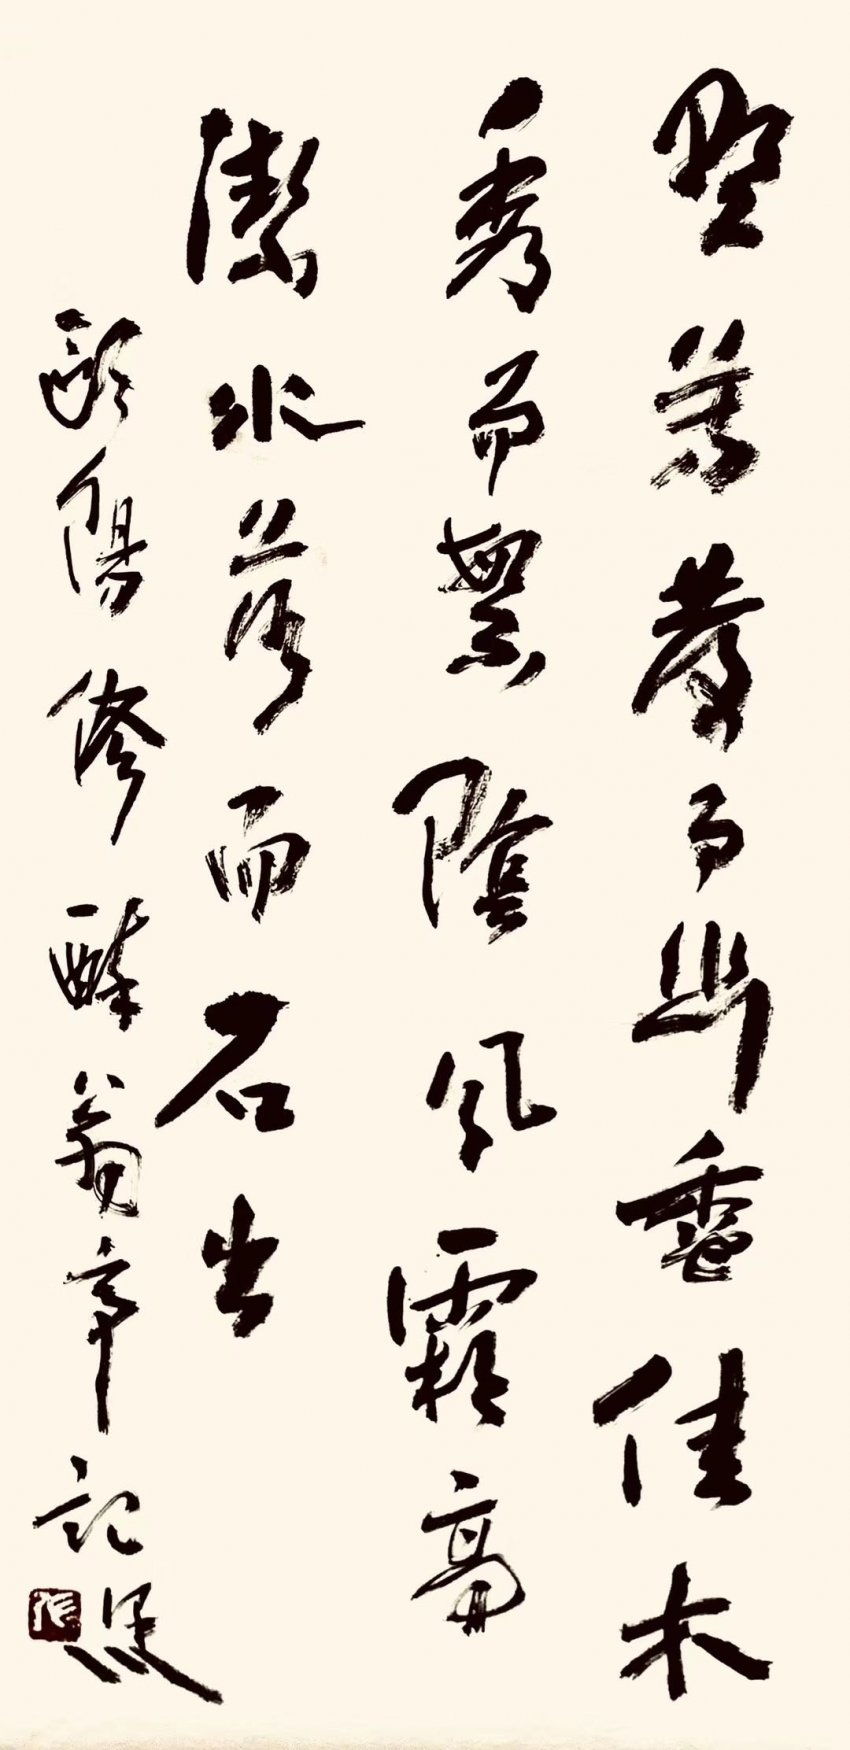 野芳發而幽香佳木
秀而繁陰風霜高
潔水落而石出
歐陽修醉翁亭記